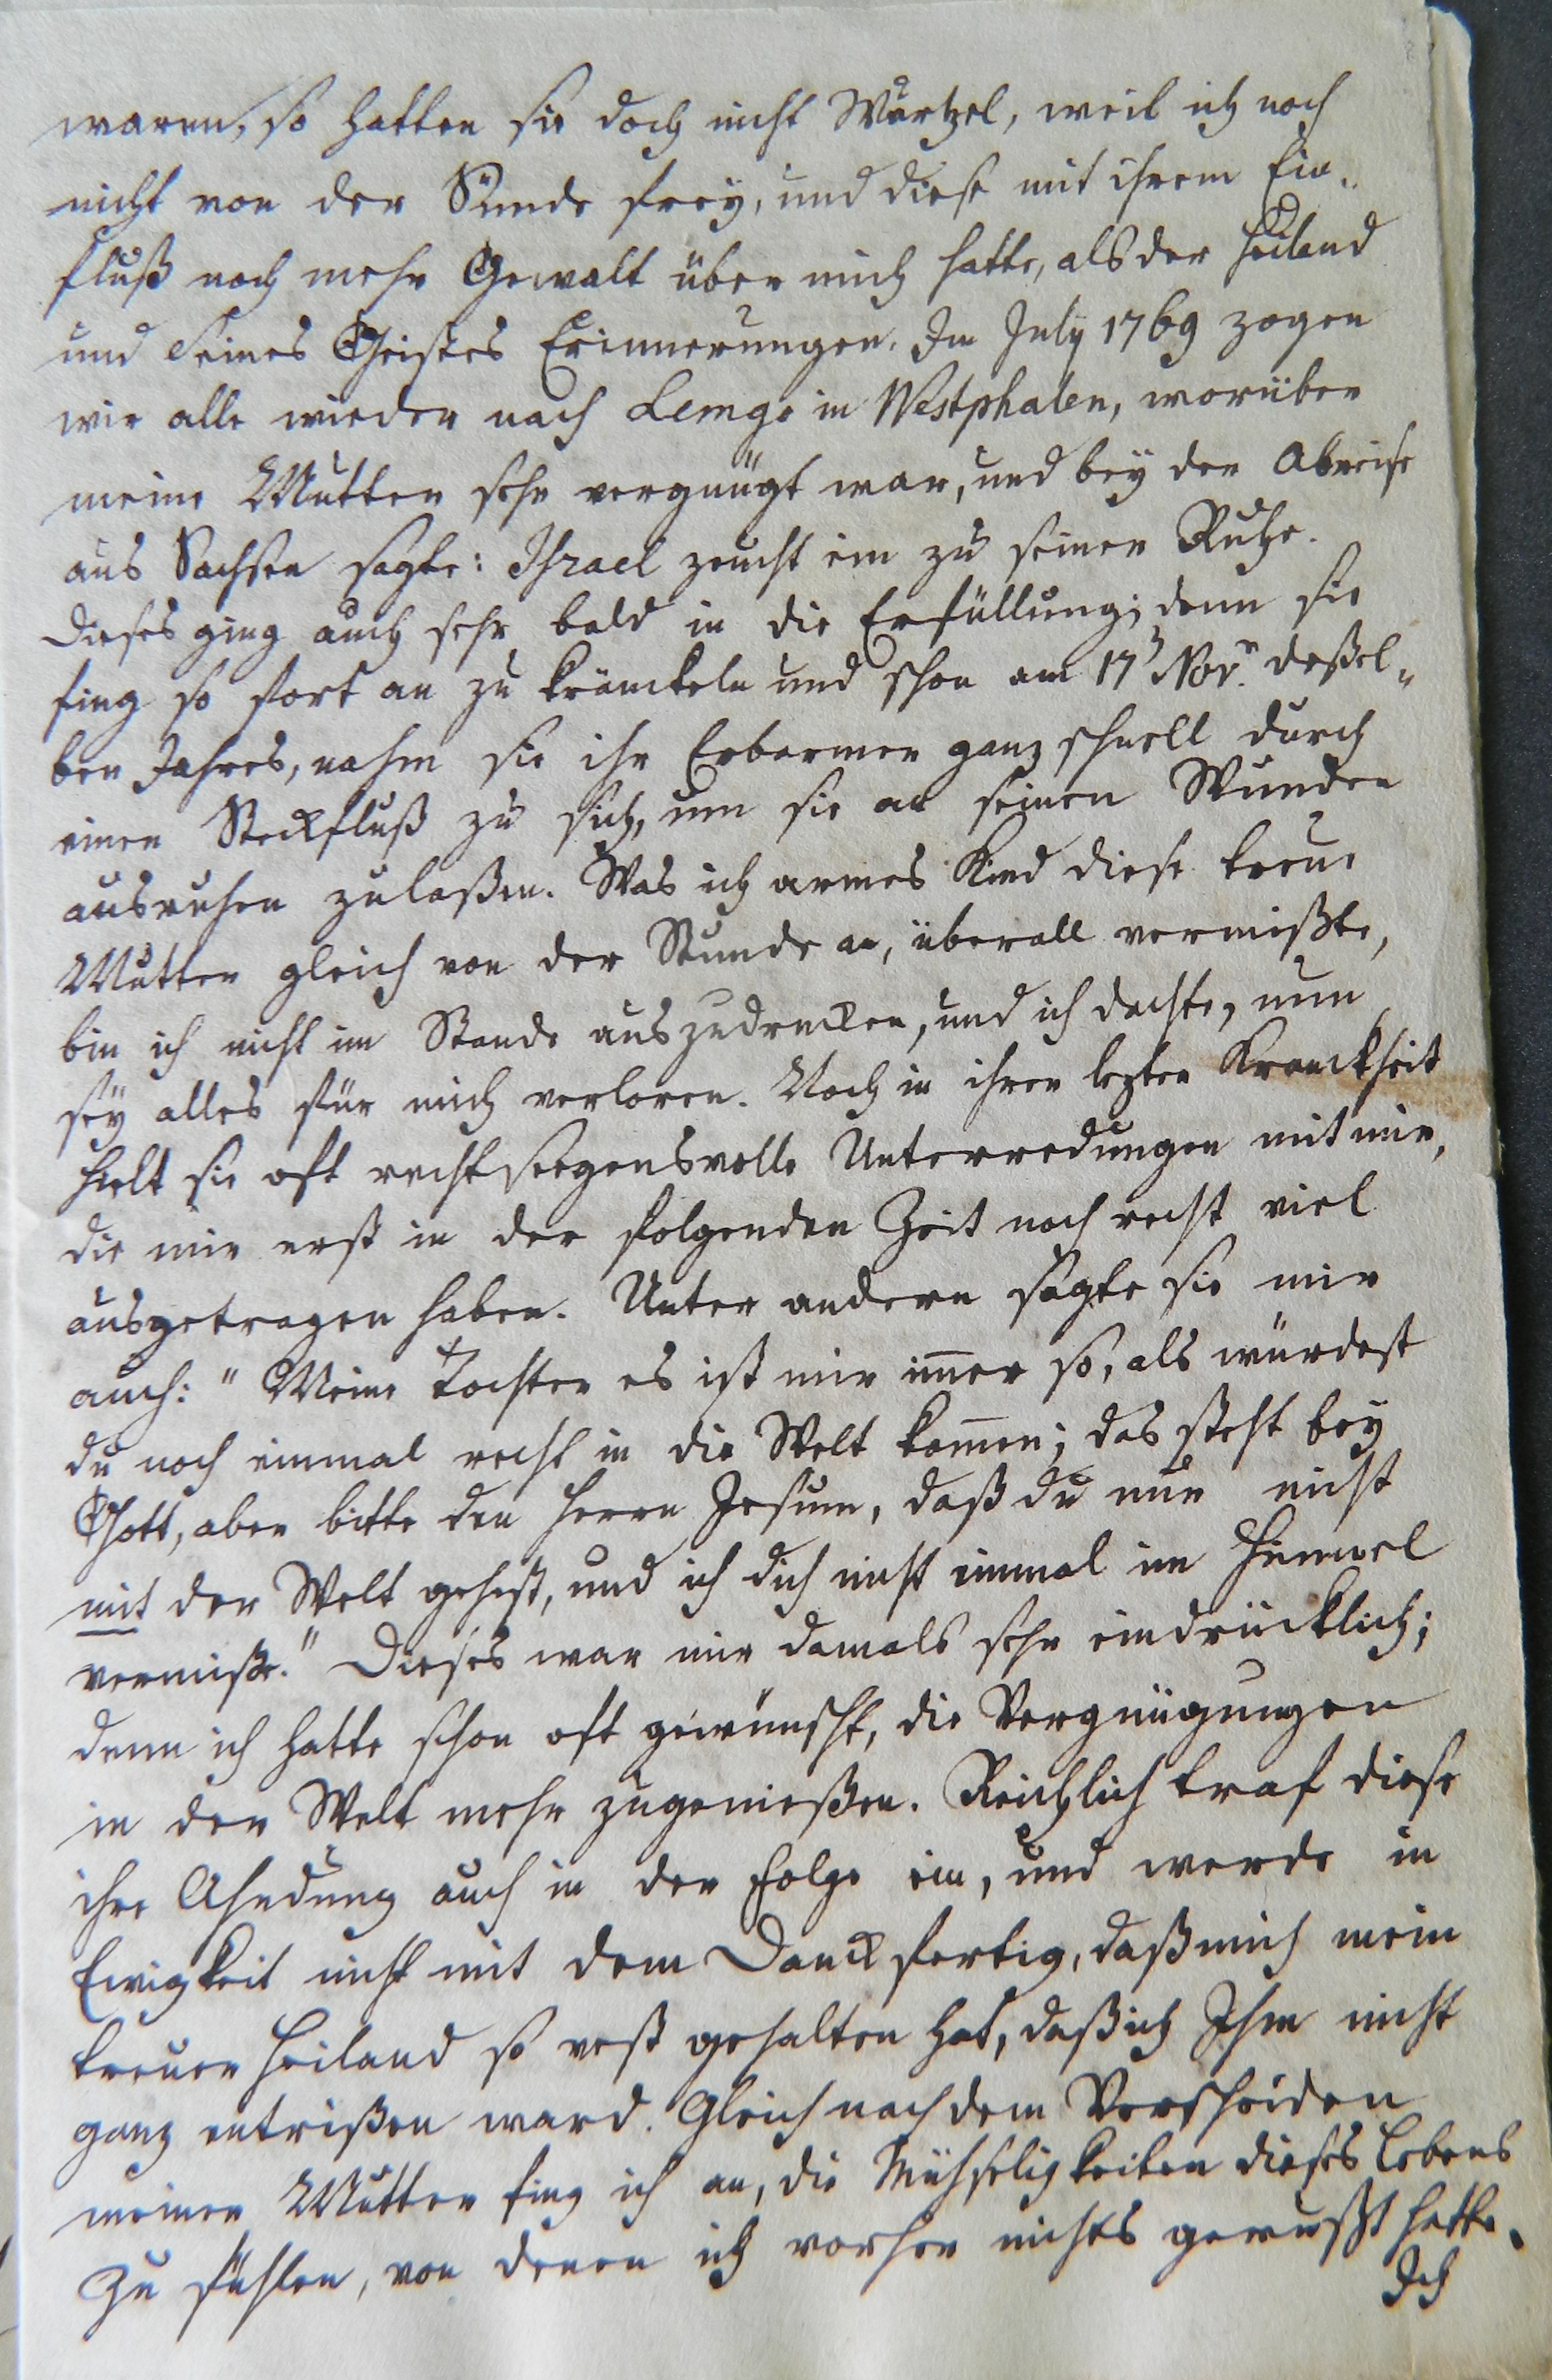 waren, so hatten sie doch nicht Wurtzel, weil ich noch
nicht von der Sünde frey, und diese mit ihrem Ein„
fluß noch mehr Gewalt über mich hatte, als der Heiland
und Seines Geistes Erinnerungen. Im July 1769 zogen
wir alle wieder nach Lemgo in Westphalen, worüber
meine Mutter sehr vergnügt war, und bey der Abreise
aus Sachsen sagte: Israel zeucht ein zu seiner Ruhe.
Dieses ging auch sehr bald in die Erfüllung; denn sie
fing so fort an zu kränckeln und schon am 17 Nov. deßel„
ben Jahres, nahm sie ihr Erbarmer ganz schnell durch
einen Steckfluß zu sich, um sie an seinen Wunden
ausruhen zulaßen. Was ich armes Kind diese treue
Mutter gleich von der Stunde an, überall vermißte,
bin ich nicht im Stande auszudrucken, und ich dachte, nun
sey alles für mich verloren. Noch in ihrer lezten Kranckheit
hielt sie oft recht seegensvolle Unterredungen mit mir,
die mir erst in der folgenden Zeit noch recht viel
ausgetragen haben. Unter andern sagte sie mir
auch: "Meine Tochter es ist mir im̅er so, als würdest
du noch einmal recht in die Welt kom̅en; das steht bey
Gott, aber bitte den Herrn Jesum, daß du nur nicht
mit der Welt gehest, und ich dich nicht einmal im Himmel
vermiße." Dieses war mir damals sehr eindrücklich;
denn ich hatte schon oft gewünscht, die Vergnügungen
in der Welt mehr zugenießen. Reichlich traf diese
ihre Ahndung auch in der Folge ein, und werde in
Ewigkeit nicht mit dem Danck fertig, daß mich mein
treuer Heiland so vest gehalten hat, daß ich Ihm nicht
ganz entrißen ward. Gleich nach dem Verscheiden
meiner Mutter fing ich an, die Mühseligkeiten dieses Lebens
zu fühlen, von denen ich vorher nichts gewußt hatte.
Ich